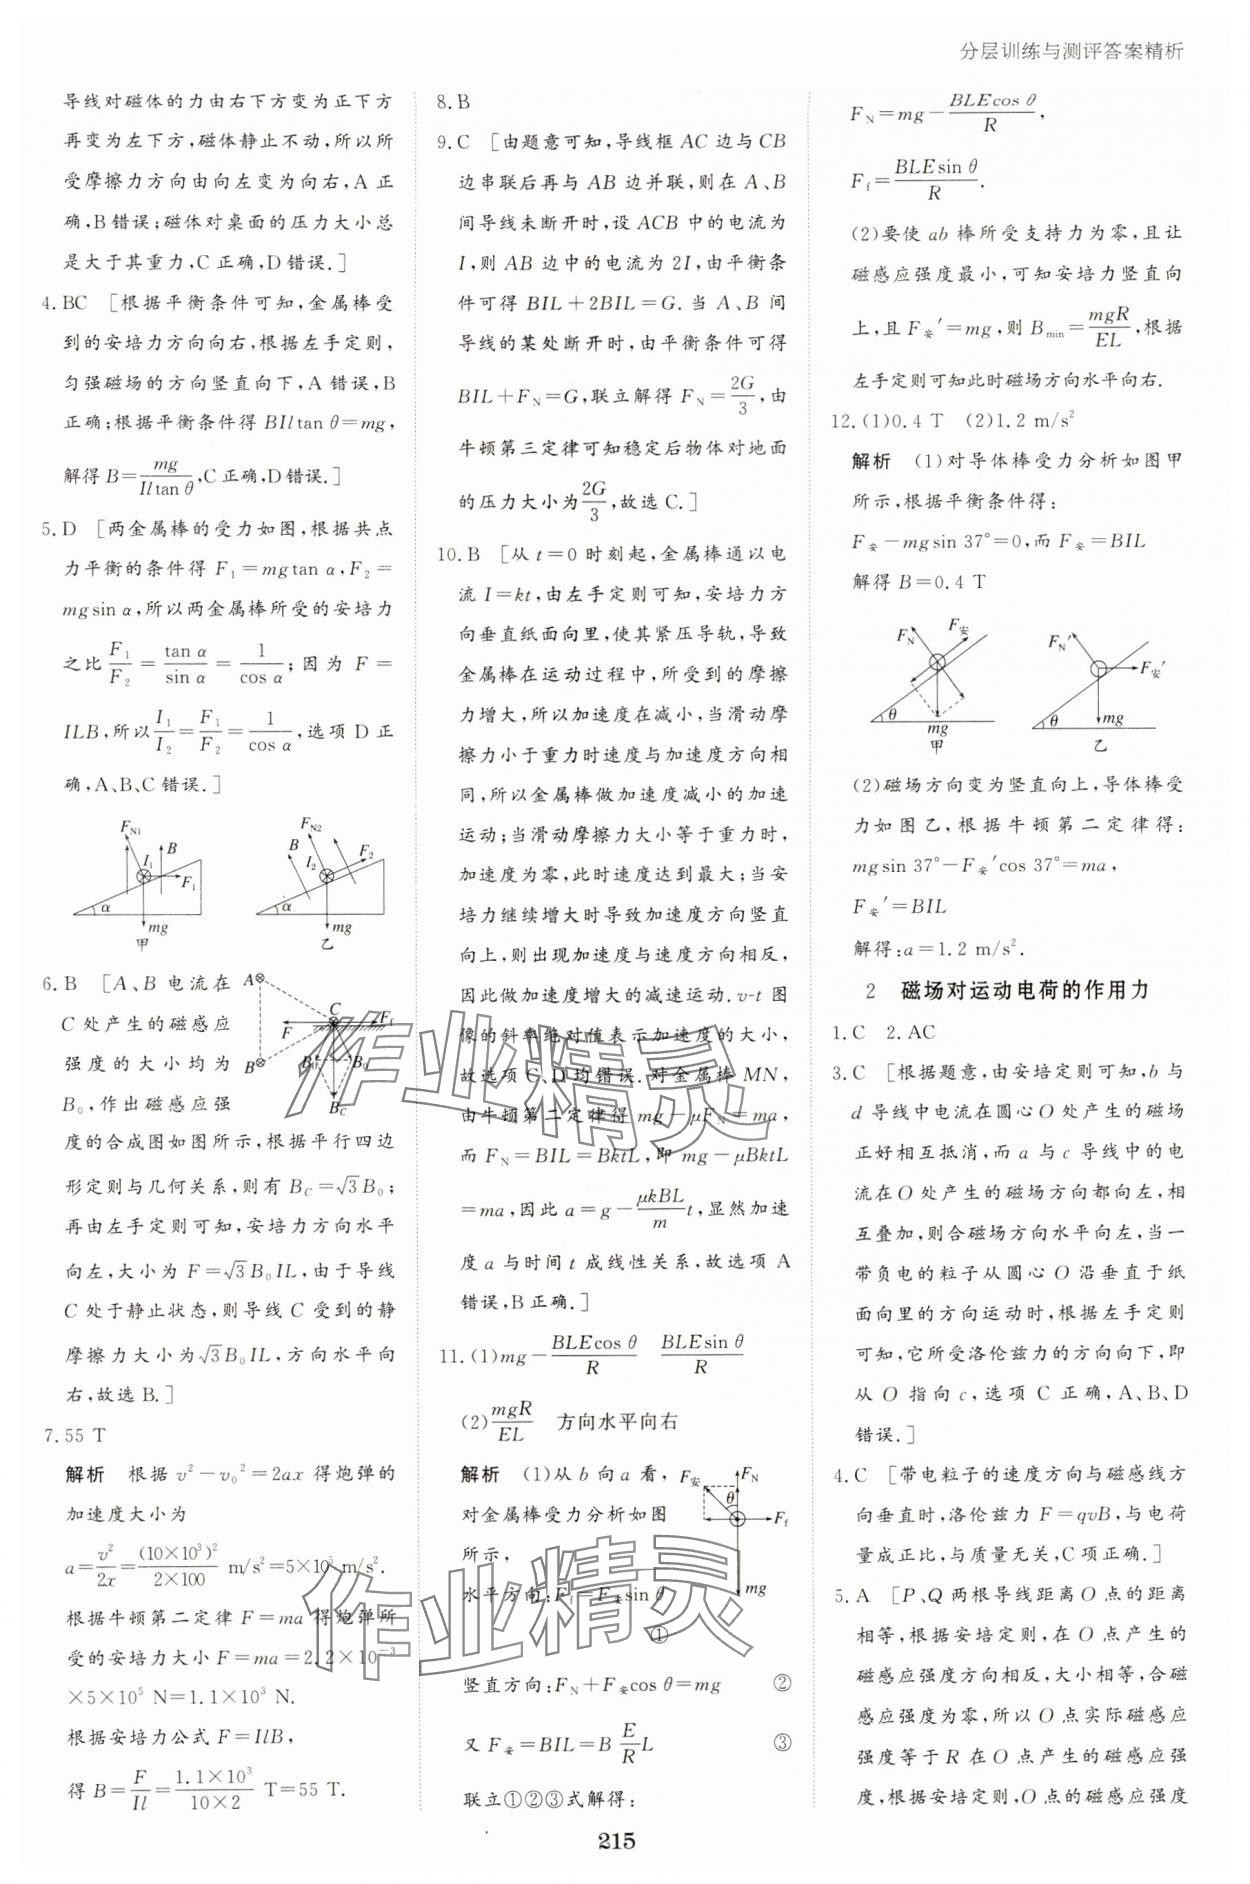 分层训练与测评答案精析
导线对磁体的力由右下方变为正下方
再变为左下方,磁体静止不动,所以所
受摩擦力方向由向左变为向右,A 正
确,B 错误;磁体对桌面的压力大小总
是大于其重力,C 正确,D 错误.]
4.BC [根据平衡条件可知,金属棒受
到的安培力方向向右,根据左手定则,
匀强磁场的方向竖直向下,A 错误,B
正确;根据平衡条件得 BIltan θ=mg,
解得 B=mg/Iltan θ,C 正确,D 错误.]
5.D [两金属棒的受力如图,根据共点
力平衡的条件得 F₁=mgtan α,F₂=
mgsin α,所以两金属棒所受的安培力
之比 F₁/F₂=tan α/sin α=1/cos α;因为 F=
ILB,所以 I₁/I₂=F₁/F₂=1/cos α,选项 D 正
确,A、B、C 错误.]
F_N1 B I₁ F₁ α mg 甲
F_N2 B I₂ F₂ α mg 乙
6.B [A、B 电流在
C 处产生的磁感应
强度的大小均为
B₀,作出磁感应强
A C F F_f B B₀ B₀ B_C
度的合成图如图所示,根据平行四边
形定则与几何关系,则有 B_C=√3B₀;
再由左手定则可知,安培力方向水平
向左,大小为 F=√3B₀IL,由于导线
C 处于静止状态,则导线 C 受到的静
摩擦力大小为√3B₀IL,方向水平向
右,故选 B.]
7.55 T
解析 根据 v²-v₀²=2ax 得炮弹的
加速度大小为
a=v²/2x=(10×10³)²/2×100 m/s²=5×10⁵ m/s².
根据牛顿第二定律 F=ma 得炮弹所
受的安培力大小 F=ma=2.2×10⁻³
×5×10⁵ N=1.1×10³ N.
根据安培力公式 F=IlB,
得 B=F/Il=1.1×10³/10×2 T=55 T.
8.B
9.C [由题意可知,导线框 AC 边与 CB
边串联后再与 AB 边并联,则在 A、B
间导线未断开时,设 ACB 中的电流为
I,则 AB 边中的电流为 2I,由平衡条
件可得 BIL+2BIL=G.当 A、B 间
导线的某处断开时,由平衡条件可得
BIL+F_N=G,联立解得 F_N=2G/3,由
牛顿第三定律可知稳定后物体对地面
的压力大小为2G/3,故选 C.]
10.B [从 t=0 时刻起,金属棒通以电
流 I=kt,由左手定则可知,安培力方
向垂直纸面向里,使其紧压导轨,导致
金属棒在运动过程中,所受到的摩擦
力增大,所以加速度在减小,当滑动摩
擦力小于重力时速度与加速度方向相
同,所以金属棒做加速度减小的加速
运动;当滑动摩擦力大小等于重力时,
加速度为零,此时速度达到最大;当安
培力继续增大时导致加速度方向竖直
向上,则出现加速度与速度方向相反,
因此做加速度增大的减速运动.v-t 图
像的斜率绝对值表示加速度的大小,
故选项 C、D 均错误.对金属棒 MN,
由牛顿第二定律得 mg-μF_N=ma,
而 F_N=BIL=BktL,即 mg-μBktL
=ma,因此 a=g-μkBL/m t,显然加速
度 a 与时间 t 成线性关系,故选项 A
错误,B 正确.]
11.(1)mg-BLEcos θ/R BLEsin θ/R
(2)mgR/EL 方向水平向右
解析 (1)从 b 向 a 看,
对金属棒受力分析如图
所示,
F_安 F_N θ F_f mg
水平方向:F_f F_安sin θ
①
竖直方向:F_N+F_安cos θ=mg ②
又 F_安=BIL=B E/R L ③
联立①②③式解得:
F_N=mg-BLEcos θ/R,
F_f=BLEsin θ/R.
(2)要使 ab 棒所受支持力为零,且让
磁感应强度最小,可知安培力竖直向
上,且 F_安′=mg,则 B_min=mgR/EL,根据
左手定则可知此时磁场方向水平向右.
12.(1)0.4 T (2)1.2 m/s²
解析 (1)对导体棒受力分析如图甲
所示,根据平衡条件得:
F_安-mgsin 37°=0,而 F_安=BIL
解得 B=0.4 T
F_N F_安 θ mg 甲
F_N′ F_安′ θ mg 乙
(2)磁场方向变为竖直向上,导体棒受
力如图乙,根据牛顿第二定律得:
mgsin 37°-F_安′cos 37°=ma,
F_安′=BIL
解得:a=1.2 m/s².
2 磁场对运动电荷的作用力
1.C 2.AC
3.C [根据题意,由安培定则可知,b 与
d 导线中电流在圆心 O 处产生的磁场
正好相互抵消,而 a 与 c 导线中的电
流在 O 处产生的磁场方向都向左,相
互叠加,则合磁场方向水平向左,当一
带负电的粒子从圆心 O 沿垂直于纸
面向里的方向运动时,根据左手定则
可知,它所受洛伦兹力的方向向下,即
从 O 指向 c,选项 C 正确,A、B、D
错误.]
4.C [带电粒子的速度方向与磁感线方
向垂直时,洛伦兹力 F=qvB,与电荷
量成正比,与质量无关,C 项正确.]
5.A [P、Q 两根导线距离 O 点的距离
相等,根据安培定则,在 O 点产生的
磁感应强度方向相反,大小相等,合磁
感应强度为零,所以 O 点实际磁感应
强度等于 R 在 O 点产生的磁感应强
度,根据安培定则,O 点的磁感应强度
215
作业精灵
作业精灵